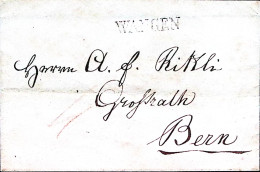 WANGEN
Herrn A. F. Rikli
Großrath
Bern